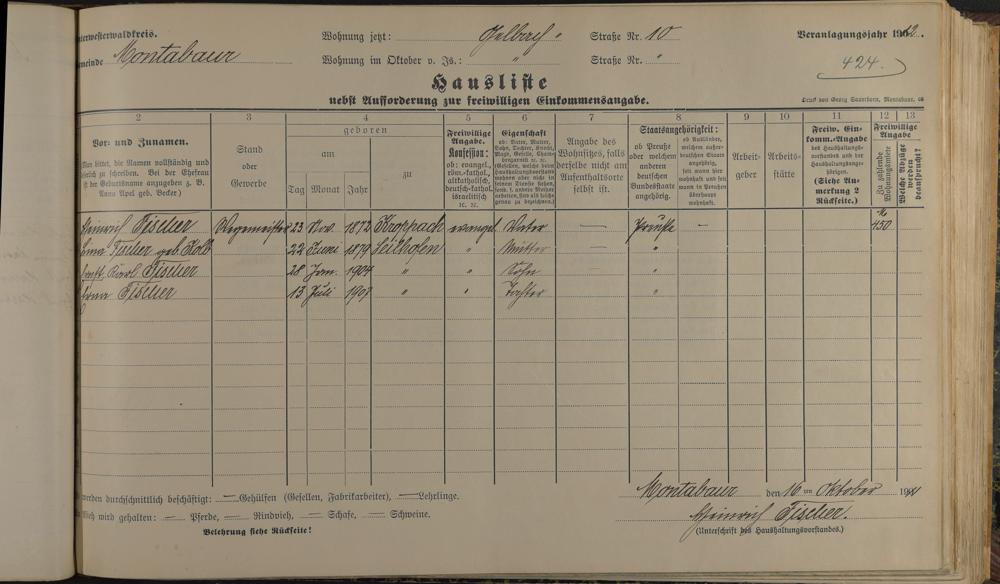 nterwesterwaldkreis.
emeinde Montabaur
Wohnung jetzt: Gelbach " Straße Nr. 10
Wohnung im Oktober v. Js.: " Straße Nr. "
Veranlagungsjahr 1912.
424.
Hausliste
nebst Aufforderung zur freiwilligen Einkommensangabe.
Druck von Georg Sauerborn, Montabaur.
2 3 4 5 6 7 8 9 10 11 12 13
Vor- und Zunamen.
Man bittet, die Namen vollständig und
zu schreiben. Bei der Ehefrau
ist der Geburtsname anzugeben z. B.
Anna Apel geb. Becker.)
Stand
oder
Gewerbe
geboren
am
Tag Monat Jahr
zu
Freiwillige
Angabe.
Konfession:
ob: evangel.,
röm.-kathol.,
altkatholisch,
deutsch-kathol.
israelitisch
rc. rc.
Eigenschaft
ob: Vater, Mutter,
Sohn, Tochter,
Angabe des
Wohnsitzes, falls
derselbe nicht am
Aufenthaltsorte
selbst ist.
Staatsangehörigkeit:
ob Preuße
oder welchem
anderen
deutschen
Bundesstaate
angehörig.
ob Ausländer,
welchem außer-
deutschen Staate
angehörig,
seit wann hier
wohnhaft und seit
wann in Preußen
überhaupt
wohnhaft.
Arbeit-
geber
Arbeits-
stätte
Freiw. Ein-
komm.-Angabe
des Haushaltungs-
vorstandes und der
Haushaltungsange-
hörigen.
(Siehe An-
merkung 2
Rückseite.)
Freiwillige
Angabe
Zu zahlende
Wohnungsmiete
Welche Abzüge
werden
beansprucht?
Heinrich Fischer Wegemeister 23 Nov. 1873 Kroppach evangel Vater — Preuße — 150
Fischer geb. Kolb 22 Juni 1879 " Mutter — "
Karl Fischer 28 Jan. 1904 " " Sohn "
Erna Fischer 13 Juli 1907 " " Tochter "
werden durchschnittlich beschäftigt: — Gehülfen (Gesellen, Fabrikarbeiter), — Lehrlinge.
Vieh wird gehalten: — Pferde, — Rindvieh, — Schafe, — Schweine.
Belehrung siehe Rückseite!
Montabaur den 16 ten Oktober 1911
Heinrich Fischer.
(Unterschrift des Haushaltungsvorstandes.)